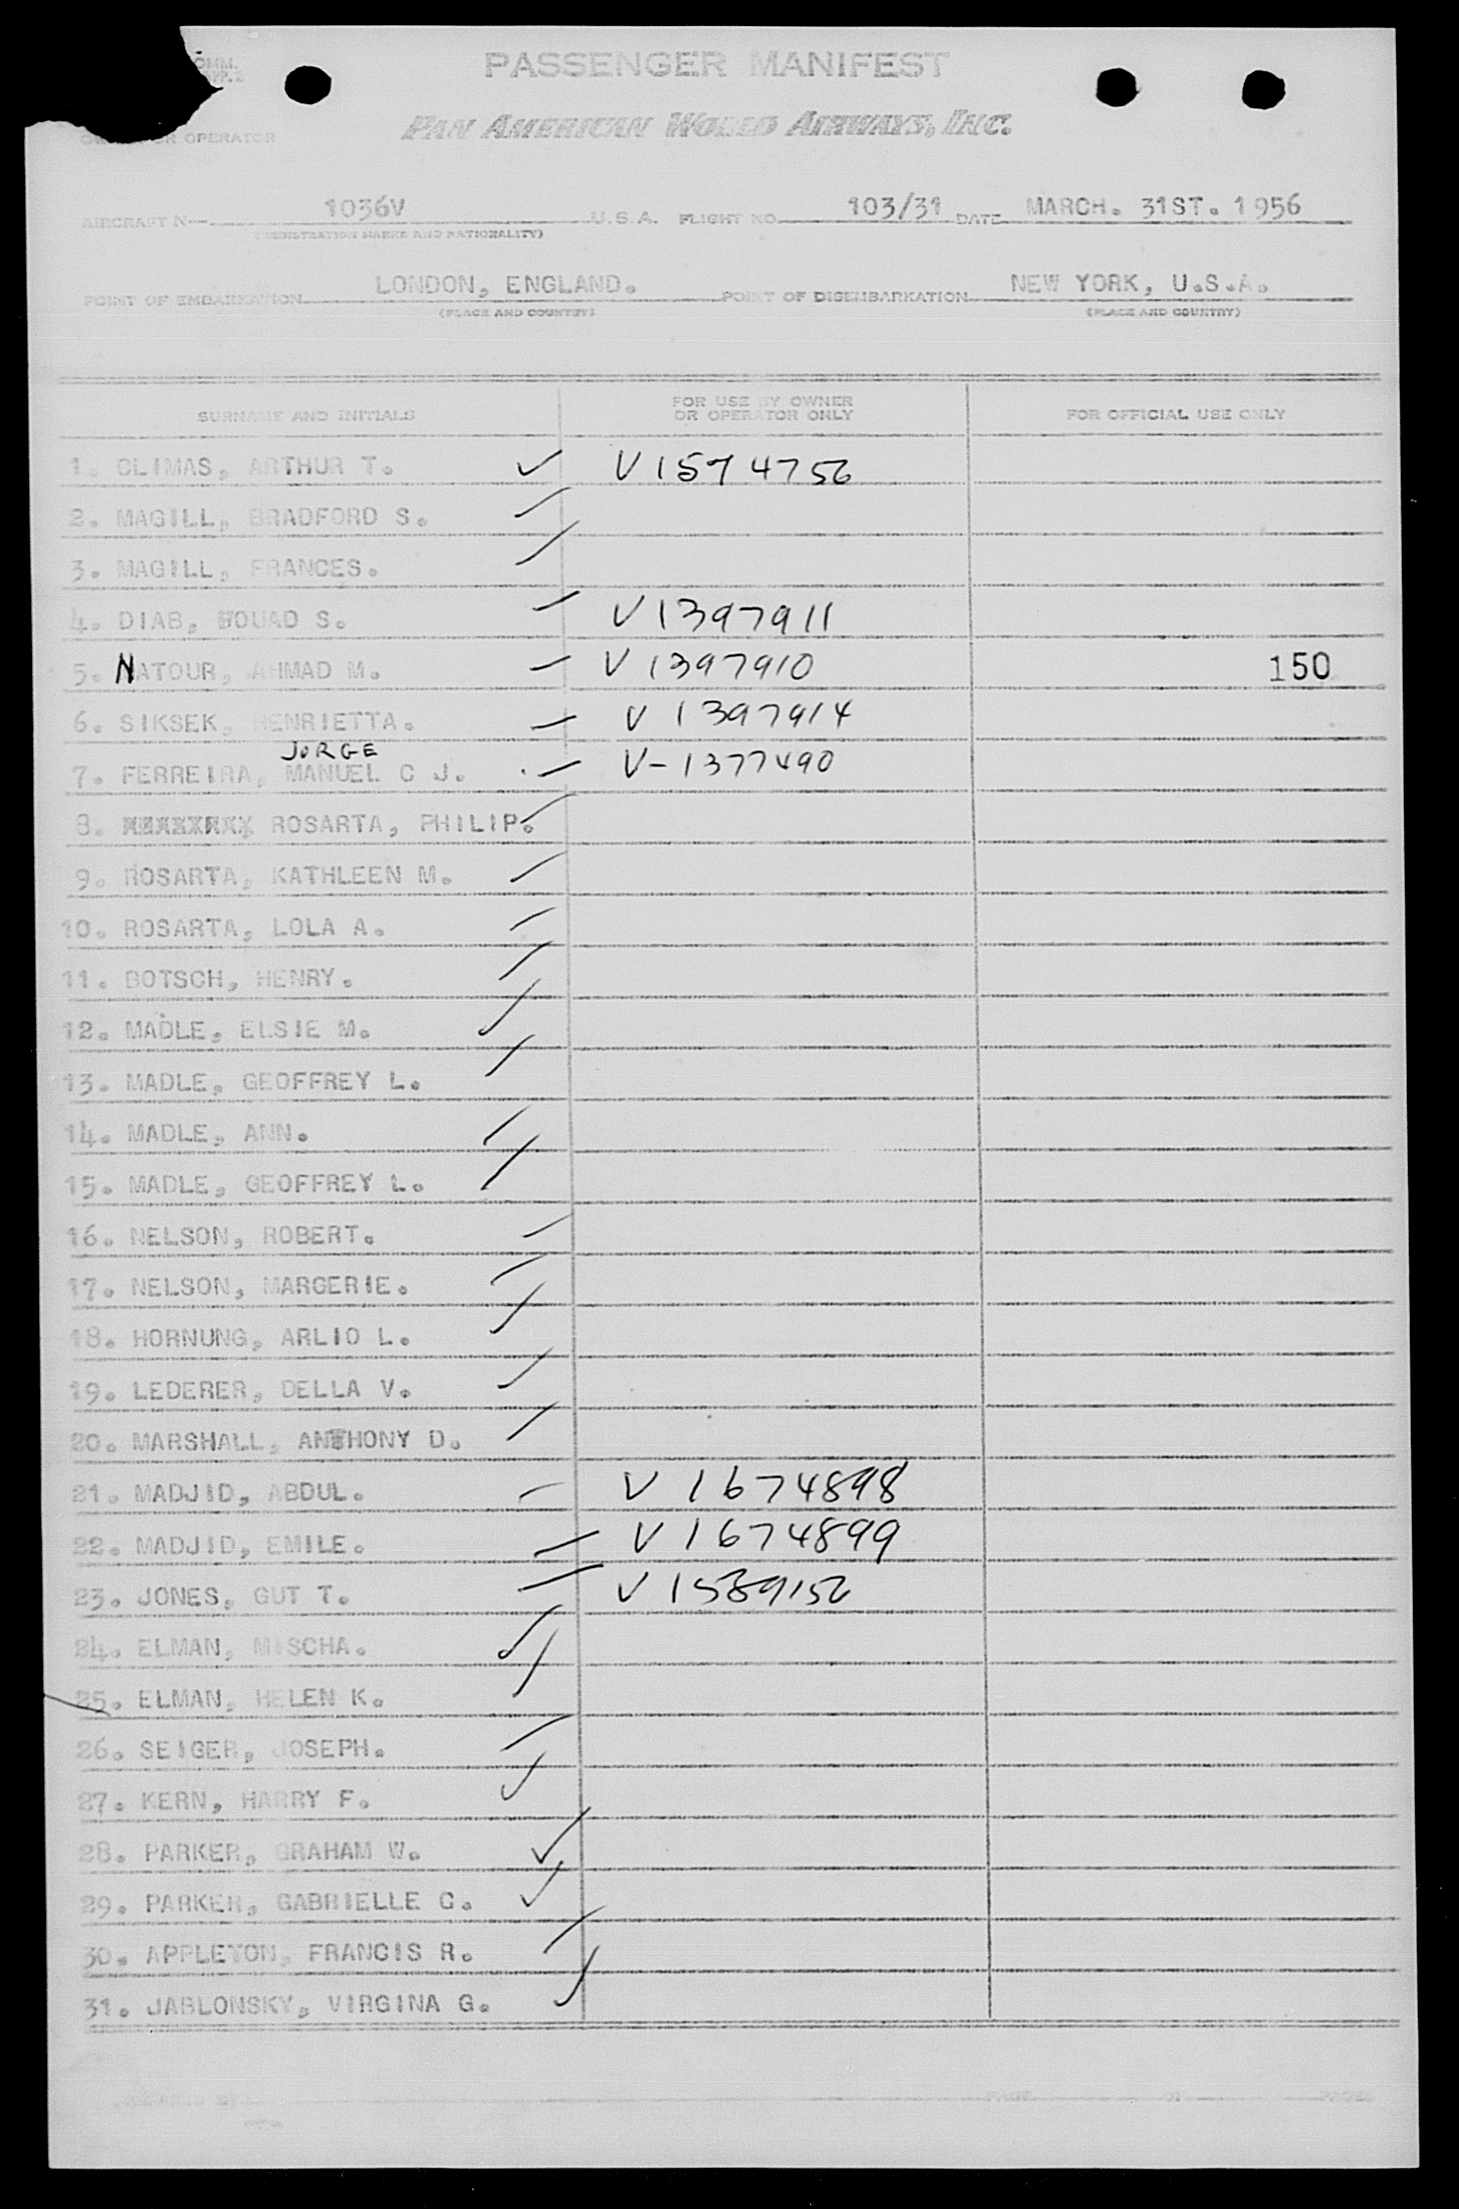 COMM.
PASSENGER MANIFEST
OR OPERATOR
PAN AMERICAN WORLD AIRWAYS, INC.
AIRCRAFT N— 1036V U.S.A. FLIGHT NO. 103/31 DATE MARCH. 31ST. 1956
(REGISTRATION MARKS AND NATIONALITY)
POINT OF EMBARKATION LONDON, ENGLAND. POINT OF DISEMBARKATION NEW YORK, U.S.A.
(PLACE AND COUNTRY) (PLACE AND COUNTRY)
SURNAME AND INITIALS FOR USE BY OWNER OR OPERATOR ONLY FOR OFFICIAL USE ONLY
1. CLIMAS, ARTHUR T. ✓ V 1574756
2. MAGILL, BRADFORD S.
3. MAGILL, FRANCES.
4. DIAB, FOUAD S. V 1397911
5. NATOUR, AHMAD M. V 1397910 150
6. SIKSEK, HENRIETTA. V 1397914
JORGE
7. FERREIRA, MANUEL C J. V-1377490
8. ROSARTA, PHILIP.
9. ROSARTA, KATHLEEN M.
10. ROSARTA, LOLA A.
11. BOTSCH, HENRY.
12. MADLE, ELSIE M.
13. MADLE, GEOFFREY L.
14. MADLE, ANN.
15. MADLE, GEOFFREY L.
16. NELSON, ROBERT.
17. NELSON, MARGERIE.
18. HORNUNG, ARLIO L.
19. LEDERER, DELLA V.
20. MARSHALL, ANTHONY D.
21. MADJID, ABDUL. V 1674898
22. MADJID, EMILE. V 1674899
23. JONES, GUT T. V 1589156
24. ELMAN, MISCHA.
25. ELMAN, HELEN K.
26. SEIGER, JOSEPH.
27. KERN, HARRY F.
28. PARKER, GRAHAM W.
29. PARKER, GABRIELLE C.
30. APPLETON, FRANCIS R.
31. JABLONSKY, VIRGINA G.
PAGE OF PAGES